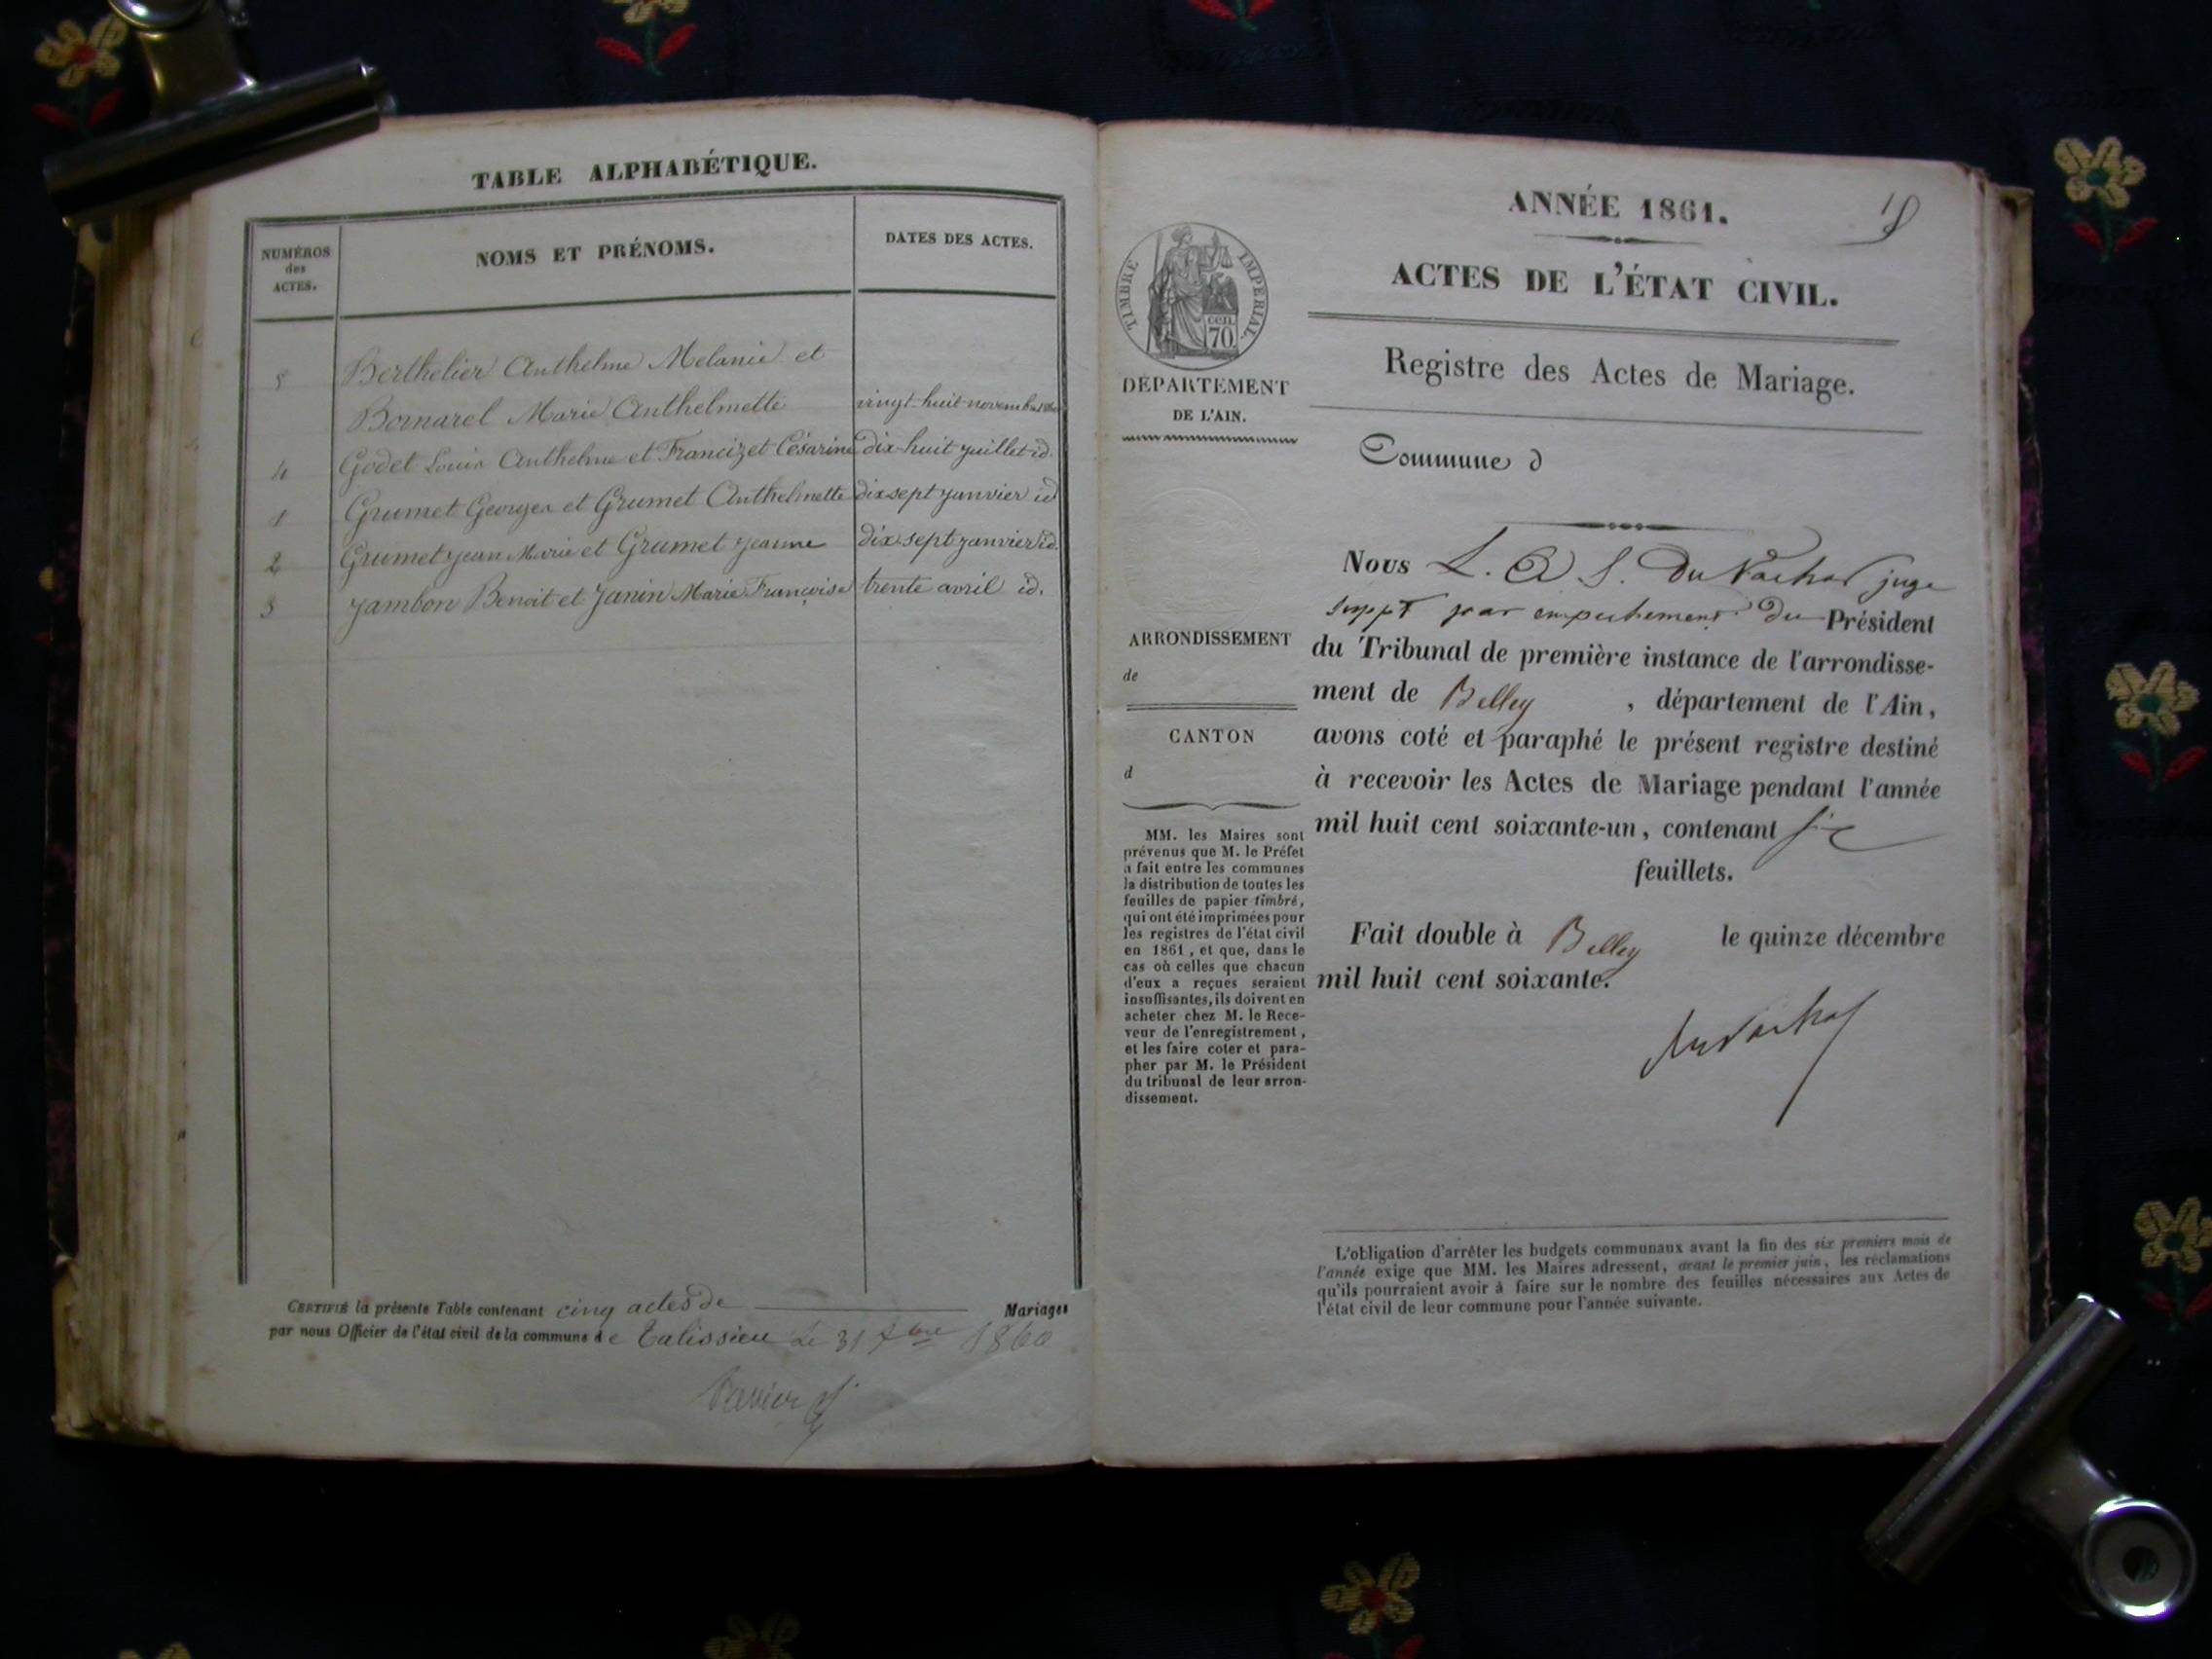 TABLE ALPHABÉTIQUE.
NUMÉROS
des
ACTES.
NOMS ET PRÉNOMS.
DATES DES ACTES.
5 Berthelier Anthelme Melanie et
Bornarel Marie Anthelmette vingt-huit novembre 1860
4 Godet Louis Anthelme et Francizet Césarine dix-huit juillet id.
1 Grumet Georges et Grumet Anthelmette dix sept janvier id
2 Grumet Jean Marie et Grumet Jeanne dix sept janvier id.
3 Jambon Benoit et Janin Marie Françoise trente avril id.
CERTIFIÉ la présente Table contenant cinq actes de Mariages
par nous Officier de l'état civil de la commune de Talissieu le 31 Xbre 1860
ANNÉE 1861.
ACTES DE L'ÉTAT CIVIL.
Registre des Actes de Mariage.
Commune d
TIMBRE IMPÉRIAL.
cen.
70
DÉPARTEMENT
DE L'AIN.
ARRONDISSEMENT
de
CANTON
d
MM. les Maires sont
prévenus que M. le Préfet
a fait entre les communes
la distribution de toutes les
feuilles de papier timbré,
qui ont été imprimées pour
les registres de l'état civil
en 1861, et que, dans le
cas où celles que chacun
d'eux a reçues seraient
insuffisantes, ils doivent en
acheter chez M. le Rece-
veur de l'enregistrement,
et les faire coter et para-
pher par M. le Président
du tribunal de leur arron-
dissement.
Nous L. juge
suppt par empechement du Président
du Tribunal de première instance de l'arrondisse-
ment de Belley , département de l'Ain,
avons coté et paraphé le présent registre destiné
à recevoir les Actes de Mariage pendant l'année
mil huit cent soixante-un, contenant six
feuillets.
Fait double à Belley le quinze décembre
mil huit cent soixante.
L'obligation d'arrêter les budgets communaux avant la fin des six premiers mois de
l'année exige que MM. les Maires adressent, avant le premier juin, les réclamations
qu'ils pourraient avoir à faire sur le nombre des feuilles nécessaires aux Actes de
l'état civil de leur commune pour l'année suivante.